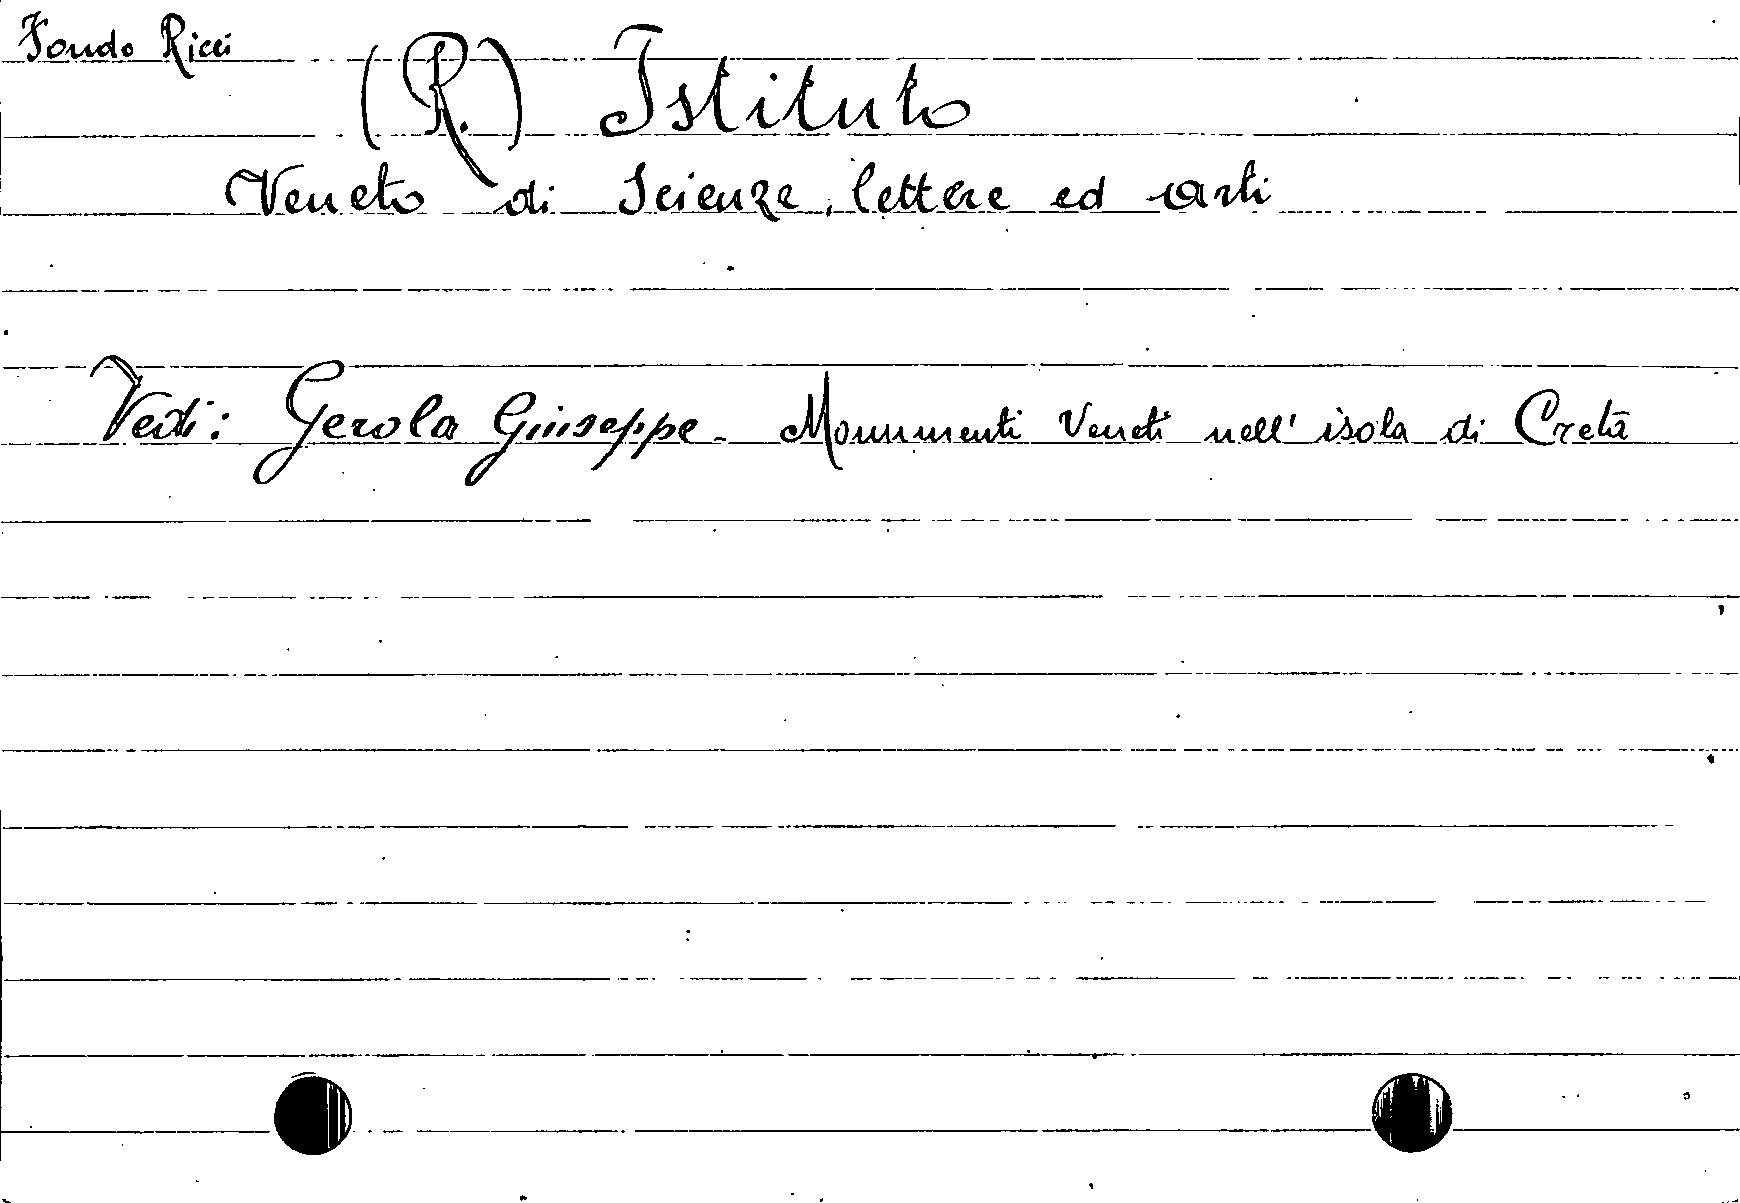 Fondo Ricci
(R.) Istituto
Veneto di Scienze, lettere ed arti
Vedi: Gerola Giuseppe - Monumenti Veneti nell' isola di Creta